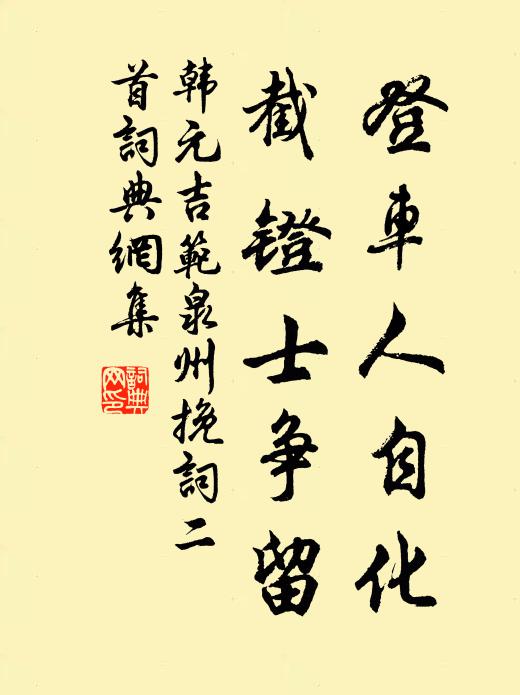 登車人自化
截鐙士爭留
韩元吉範泉州挽詞二
首詞典網集
詞典网印